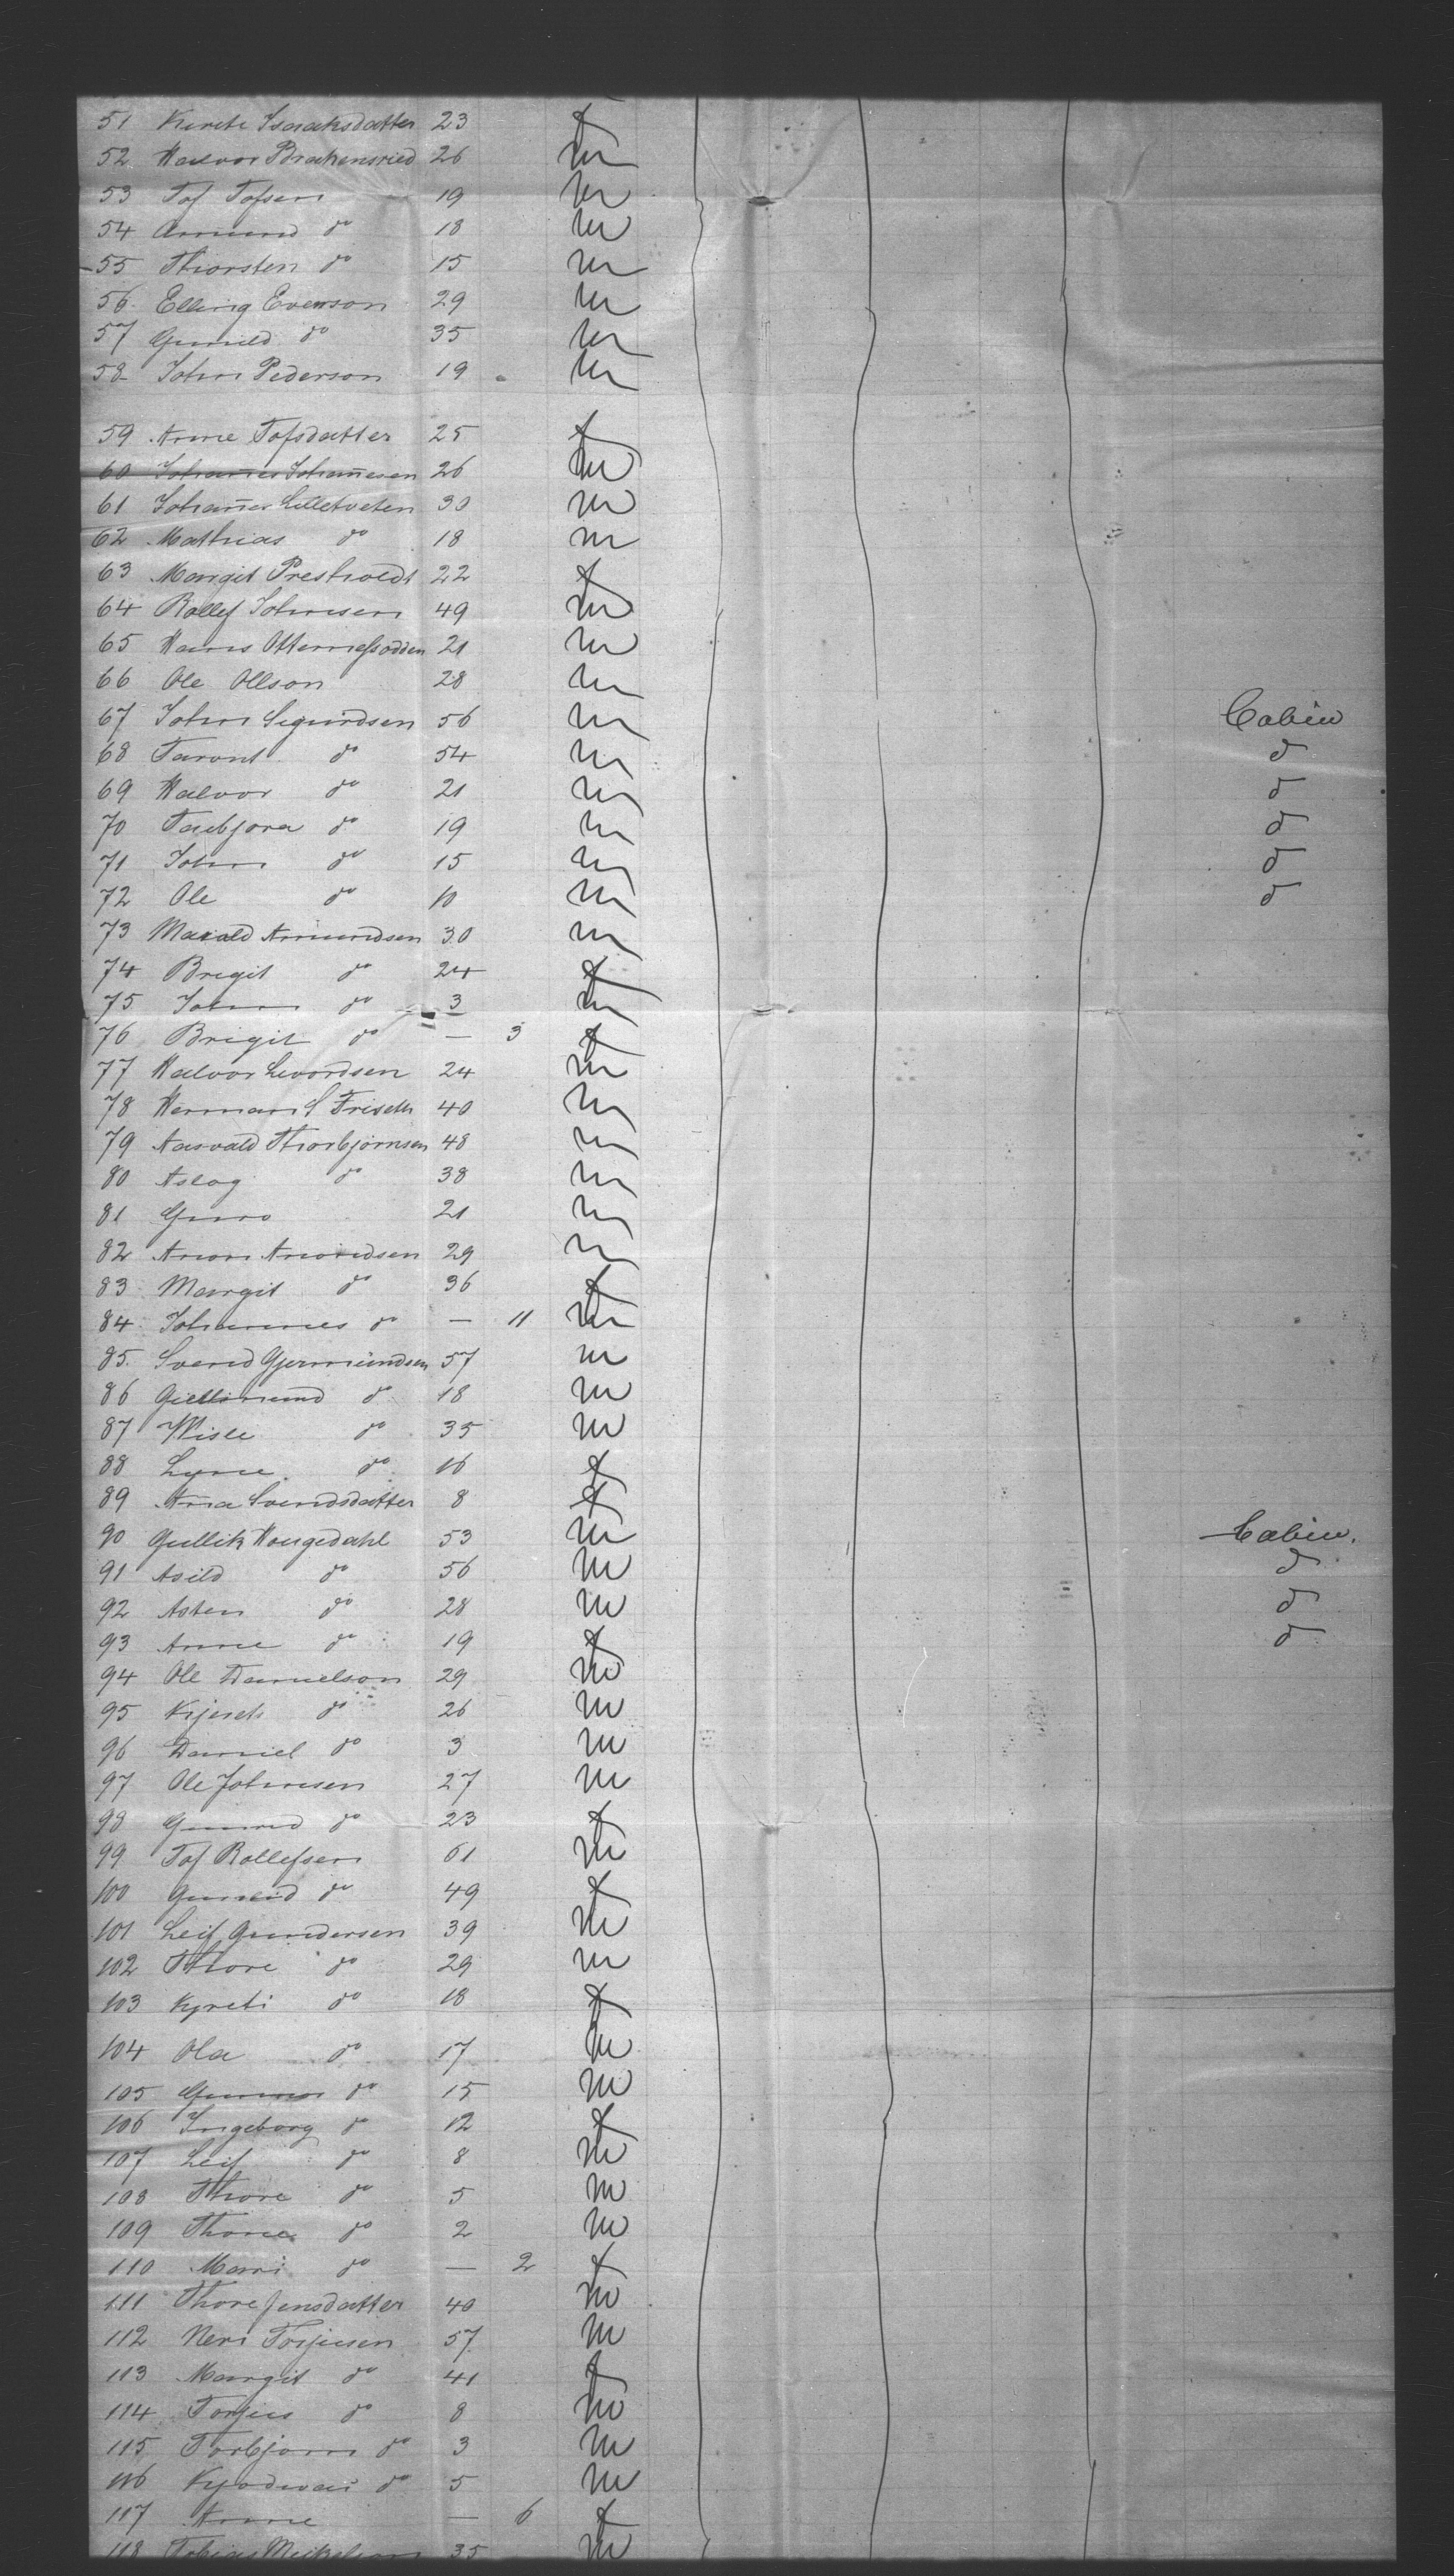 51 Kirsti Isaaksdatter 23 f
52 Halvor Brakensried 26 m
53 Tof Tofsen 19 m
54 Amund do 18 m
55 Thorsten do 15 m
56 Elling Evenson 29 m
57 Gunild do 35 m
58 John Pederson 19 m
59 Anne Tofsdatter 25 f
60 Johañes Johañesen 26 m
61 Johañes Lilletveten 30 m
62 Mathias do 18 m
63 Margit Prestholdt 22 f
64 Rollef Johnsen 49 m
65 Hans 21 m
66 Ole Ollson 28 m
67 John Sigurdsen 56 m Cabin
68 Taront do 54 m d
69 Halvor do 21 m d
70 Taebjora do 19 m d
71 John do 15 m d
72 Ole do 10 m d
73 Harald Amundsen 30 m
74 Bregit do 24 f
75 John do 3 m
76 Brigit do — 3 f
77 Halvor Levordsen 24 m
78 Herman S Friseth 40 m
79 Aasvald Thorbjörnsen 48 m
80 Aslog do 38 m
81 Guro 21 m
82 Anon Anondsen 29 m
83 Margit do 36 f
84 Johannes do — 11 m
85 Svend Gjermundsen 57 m
86 do 18 m
87 do 35 m
88 do 16 f
89 Aña Svendsdatter 8 f
90 Gullik Haugedahl 53 m Cabin.
91 Asild do 56 m d
92 Asten do 28 m d
93 Anne do 19 f d
94 Ole Danielson 29 m
95 do 26 m
96 Daniel do 3 m
97 Ole Johnsen 27 m
98 do 23 f
99 Tof Rollefsen 61 m
100 do 49 f
101 Leif Gundersen 39 m
102 Thore do 29 m
103 Kyreti do 18 f
104 Ola do 17 m
105 Gunnar do 15 m
106 Ingeborg do 12 f
107 Leif do 8 m
108 Thore do 5 m
109 Thone do 2 m
110 Mari do — 2 f
111 Thore Jensdatter 40 m
112 Neri Torjusen 57 m
113 Margit do 41 f
114 Torjus do 8 m
115 Torbjorn do 3 m
116 do 5 m
117 Anne — 6 f
118 Tobias 35 m